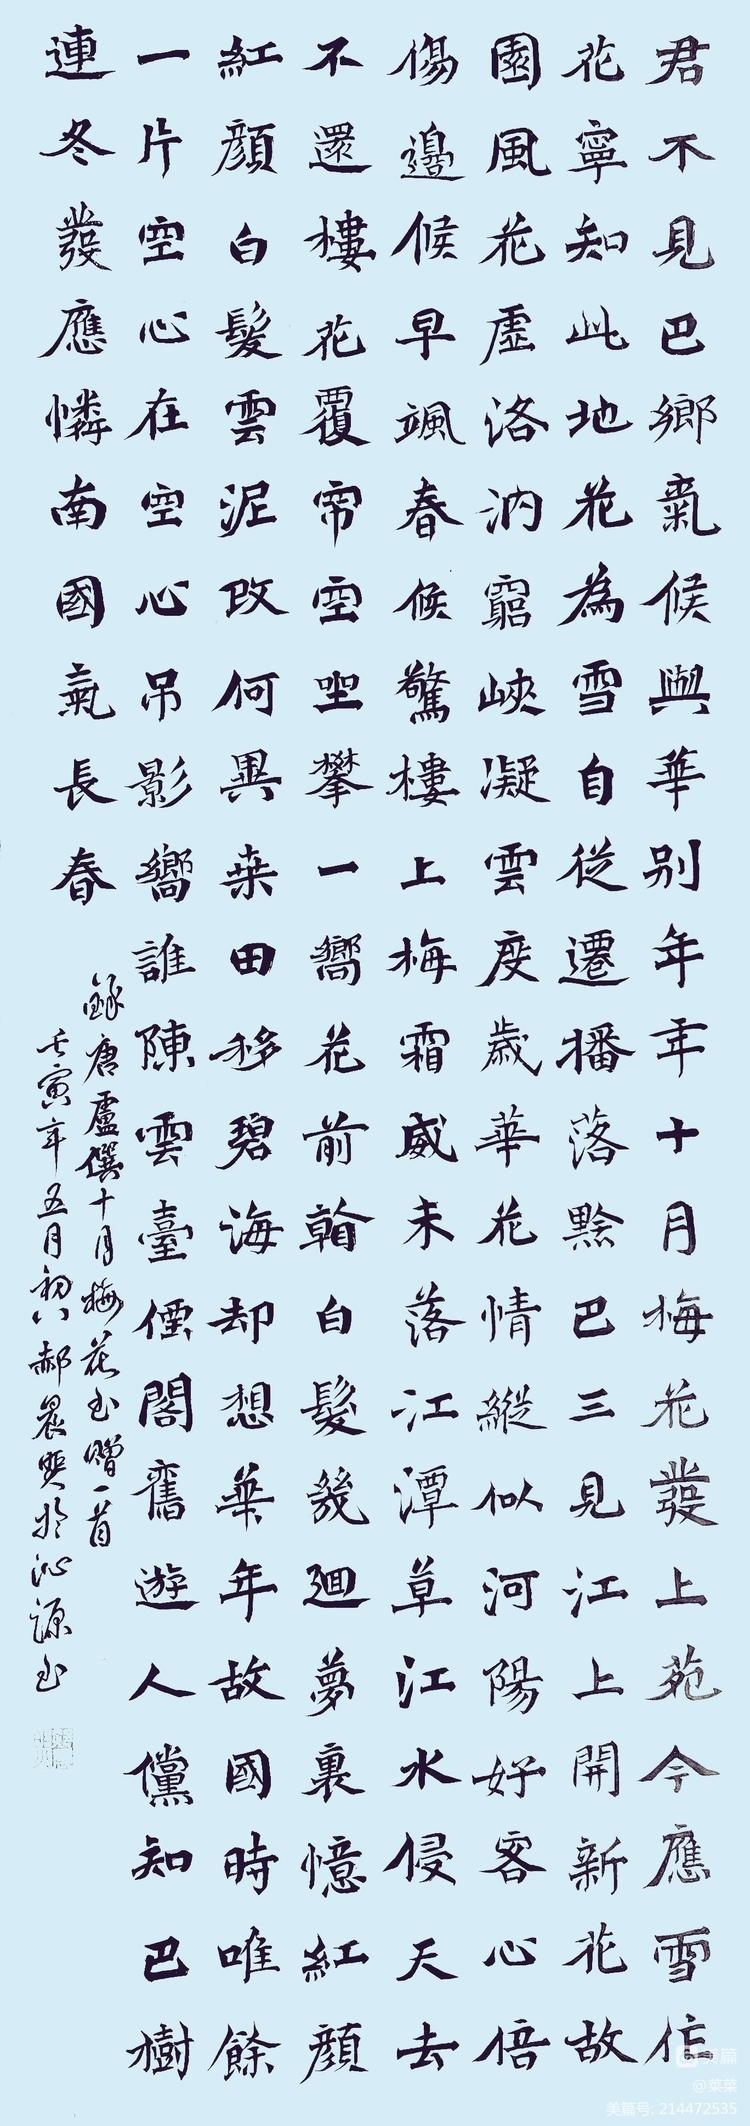 君不見巴鄉氣候與華别年年十月梅花發上苑今應雪作
花寧知此地花為雪自從遷播落黔巴三見江上開新花故
園風花虛洛汭窮峽凝雲度歲華花情縱似河陽好客心倍
傷邊候早颯春候驚樓上梅霜威未落江潭草江水侵天去
不還樓花覆帘空坐攀一嚮花前翰白髮幾迴夢裏憶紅顏
紅顏白髮雲泥改何異桒田移碧海却想華年故國時唯餘
一片空心在空心吊影嚮誰陳雲臺僊閣舊遊人儻知巴樹
連冬發應憐南國氣長春
錄唐盧僎十月梅花书贈一首
壬寅年五月初八郝晨於沁源书
美篇
@菜菜
美篇号: 214472535